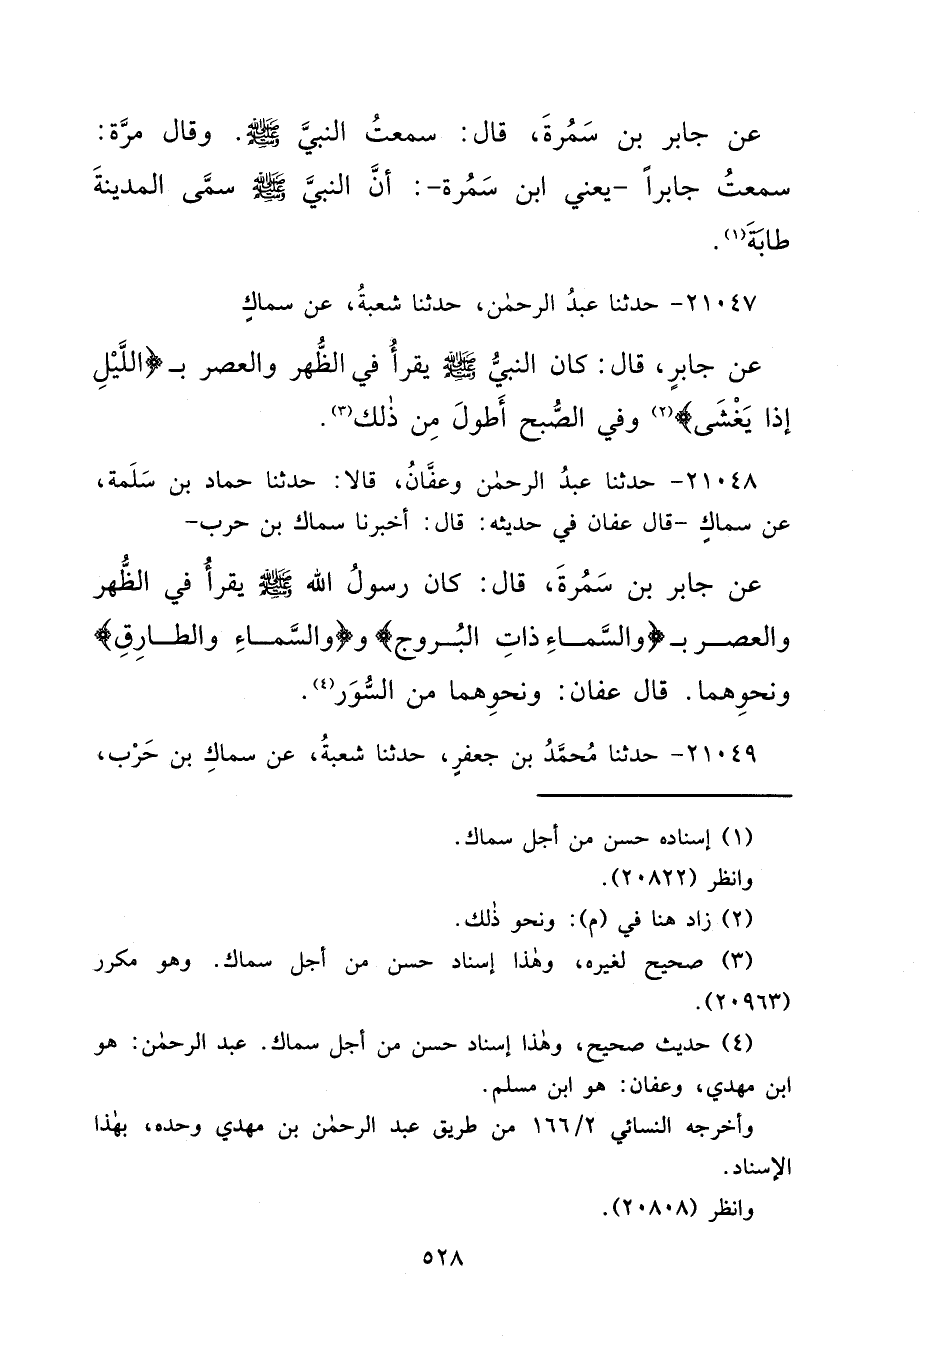 عن جابر بن سَمُرةَ، قال: سمعتُ النبيَّ ﷺ. وقال مرَّة:
سمعتُ جابراً -يعني ابن سَمُرة-: أنَّ النبيَّ ﷺ سمَّى المدينةَ
طابَةَ(١).
٢١٠٤٧- حدثنا عبدُ الرحمٰن، حدثنا شعبةُ، عن سماكٍ
عن جابرٍ، قال: كان النبيُّ ﷺ يقرأُ في الظُّهر والعصر بـ ﴿اللَّيْلِ
إذا يَغْشَى﴾(٢) وفي الصُّبح أَطولَ مِن ذٰلك(٣).
٢١٠٤٨- حدثنا عبدُ الرحمٰن وعفَّانُ، قالا: حدثنا حماد بن سَلَمة،
عن سماكٍ -قال عفان في حديثه: قال: أخبرنا سماك بن حرب-
عن جابر بن سَمُرةَ، قال: كان رسولُ الله ﷺ يقرأُ في الظُّهر
والعصـــر بـ ﴿والسَّمـاءِ ذاتِ البُـروج﴾ و﴿والسَّمـاءِ والطـارِقِ﴾
ونحوِهما. قال عفان: ونحوِهما من السُّوَر(٤).
٢١٠٤٩- حدثنا مُحمَّدُ بن جعفرٍ، حدثنا شعبةُ، عن سماكِ بن حَرْب،
(١) إسناده حسن من أجل سماك.
وانظر (٢٠٨٢٢).
(٢) زاد هنا في (م): ونحو ذٰلك.
(٣) صحيح لغيره، وهٰذا إسناد حسن من أجل سماك. وهو مكرر
(٢٠٩٦٣).
(٤) حديث صحيح، وهٰذا إسناد حسن من أجل سماك. عبد الرحمٰن: هو
ابن مهدي، وعفان: هو ابن مسلم.
وأخرجه النسائي ١٦٦/٢ من طريق عبد الرحمٰن بن مهدي وحده، بهٰذا
الإسناد.
وانظر (٢٠٨٠٨).
٥٢٨